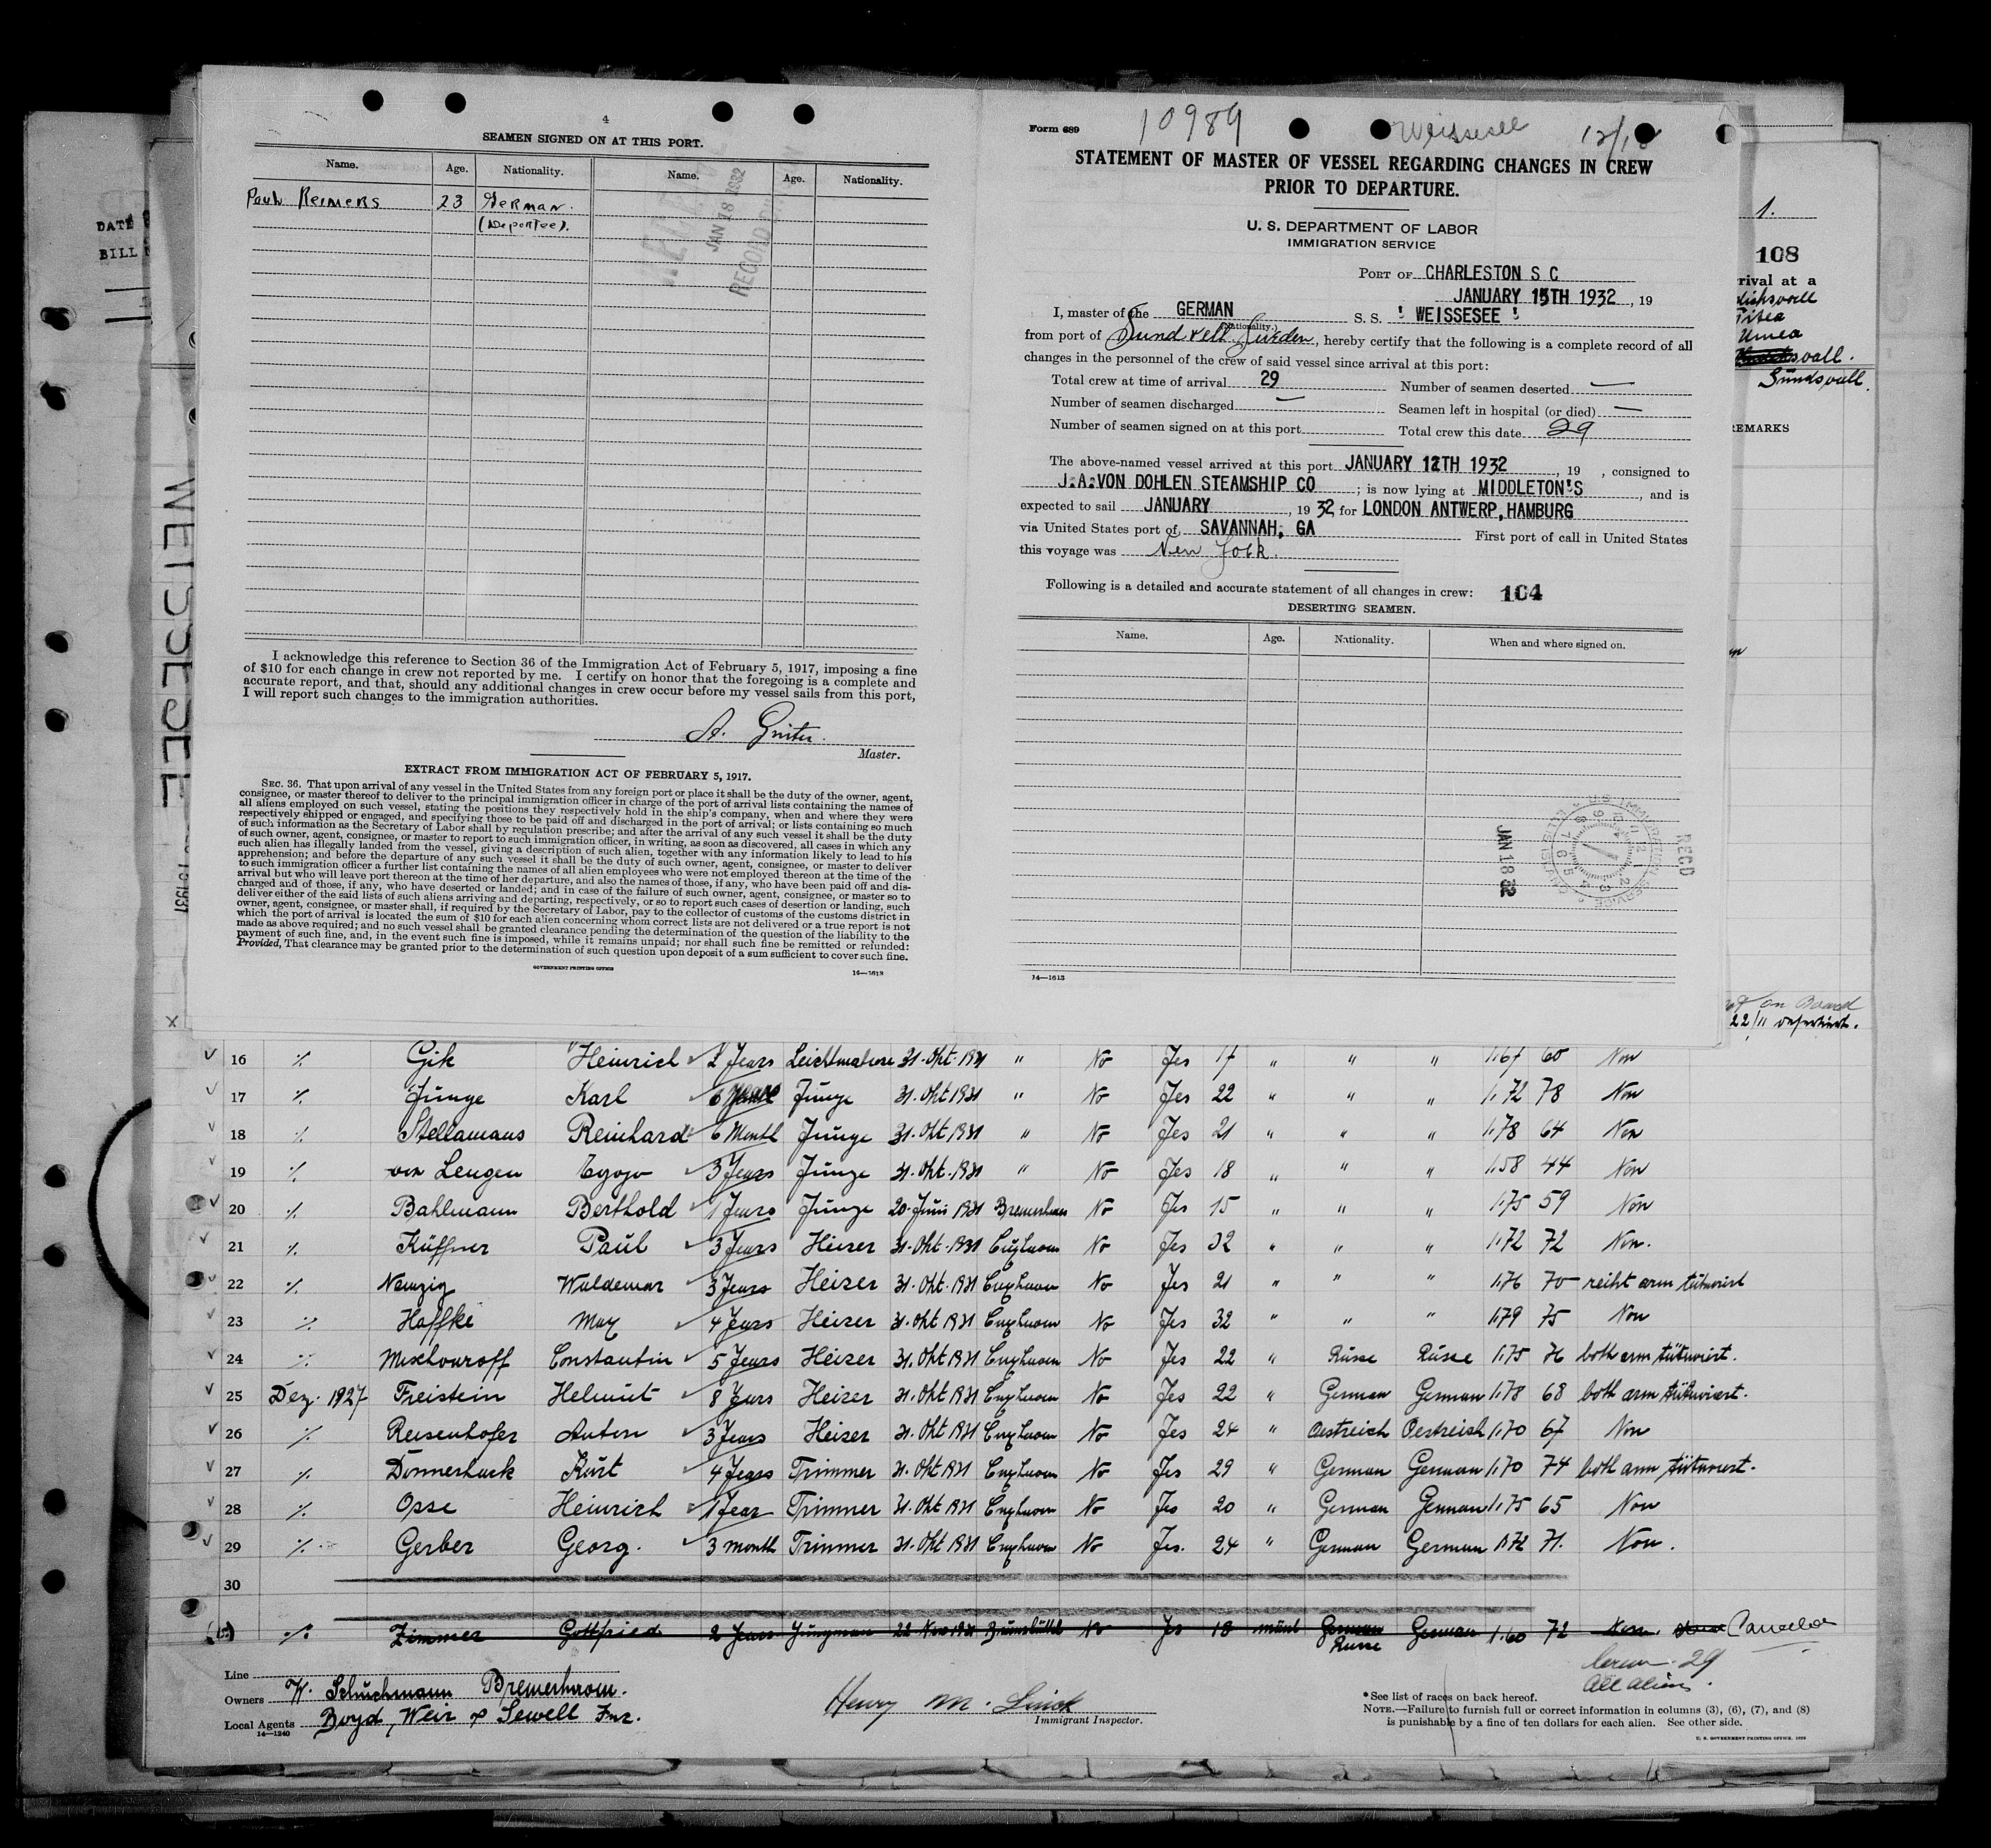 4
SEAMEN SIGNED ON AT THIS PORT.
Name. Age. Nationality. Name. Age. Nationality.
Paul Reimers 23 German.
(Deportee).
JAN 18 1932
RECORD
I acknowledge this reference to Section 36 of the Immigration Act of February 5, 1917, imposing a fine
of $10 for each change in crew not reported by me. I certify on honor that the foregoing is a complete and
accurate report, and that, should any additional changes in crew occur before my vessel sails from this port,
I will report such changes to the immigration authorities.
A.
Master.
EXTRACT FROM IMMIGRATION ACT OF FEBRUARY 5, 1917.
SEC. 36. That upon arrival of any vessel in the United States from any foreign port or place it shall be the duty of the owner, agent,
consignee, or master thereof to deliver to the principal immigration officer in charge of the port of arrival lists containing the names of
all aliens employed on such vessel, stating the positions they respectively hold in the ship's company, when and where they were
respectively shipped or engaged, and specifying those to be paid off and discharged in the port of arrival; or lists containing so much
of such information as the Secretary of Labor shall by regulation prescribe; and after the arrival of any such vessel it shall be the duty
of such owner, agent, consignee, or master to report to such immigration officer, in writing, as soon as discovered, all cases in which any
such alien has illegally landed from the vessel, giving a description of such alien, together with any information likely to lead to his
apprehension; and before the departure of any such vessel it shall be the duty of such owner, agent, consignee, or master to deliver
to such immigration officer a further list containing the names of all alien employees who were not employed thereon at the time of the
arrival but who will leave port thereon at the time of her departure, and also the names of those, if any, who have been paid off and dis-
charged and of those, if any, who have deserted or landed; and in case of the failure of such owner, agent, consignee, or master so to
deliver either of the said lists of such aliens arriving and departing, respectively, or so to report such cases of desertion or landing, such
owner, agent, consignee, or master shall, if required by the Secretary of Labor, pay to the collector of customs of the customs district in
which the port of arrival is located the sum of $10 for each alien concerning whom correct lists are not delivered or a true report is not
made as above required; and no such vessel shall be granted clearance pending the determination of the question of the liability to the
payment of such fine, and, in the event such fine is imposed, while it remains unpaid; nor shall such fine be remitted or refunded:
Provided, That clearance may be granted prior to the determination of such question upon deposit of a sum sufficient to cover such fine.
GOVERNMENT PRINTING OFFICE 14—1613
Form 689 10989 Weissesee
STATEMENT OF MASTER OF VESSEL REGARDING CHANGES IN CREW
PRIOR TO DEPARTURE.
U. S. DEPARTMENT OF LABOR
IMMIGRATION SERVICE
PORT OF CHARLESTON S C
JANUARY 15TH 1932, 19
I, master of the GERMAN S. S. ' WEISSESEE '
(Nationality.)
from port of Sundsvall Sweden, hereby certify that the following is a complete record of all
changes in the personnel of the crew of said vessel since arrival at this port:
Total crew at time of arrival 29 Number of seamen deserted —
Number of seamen discharged — Seamen left in hospital (or died) —
Number of seamen signed on at this port Total crew this date 29
The above-named vessel arrived at this port JANUARY 12TH 1932, 19 , consigned to
J.A.VON DOHLEN STEAMSHIP CO ; is now lying at MIDDLETON'S, and is
expected to sail JANUARY, 19 32 for LONDON ANTWERP, HAMBURG
via United States port of SAVANNAH, GA First port of call in United States
this voyage was New York.
Following is a detailed and accurate statement of all changes in crew: 104
DESERTING SEAMEN.
Name. Age. Nationality. When and where signed on.
JAN 18 32
RECD
14—1613
DATE
BILL
WEISSESEE
1.
108
rival at a
Umea
Sundsvall.
REMARKS
on Board
22/11
16 ٪ Gik Heinrich 2 Years Leichtmatrose 31. Okt. 1931 " No Jes 17 " " " 1.67 60 Non
17 ٪ Junge Karl 6 Junge 31. Okt 1931 " No Jes 22 " " " 1.72 78 Non
18 ٪ Stellamans Reinhard 6 Month Junge 31. Okt 1931 " No Jes 21 " " " 1.78 64 Non
19 ٪ von Lengen 3 Years Junge 31. Okt. 1931 " No Jes 18 " " " 1.58 44 Non
20 ٪ Bahlmann Berthold 1 Years Junge 20. Juni 1931 Bremerhaven No Jes 15 " " " 1.75 59 Non
21 ٪ Küffner Paul 3 Years Heizer 31. Okt. 1931 Cuxhaven No Jes 32 " " " 1.72 72 Non.
22 ٪ Nanzig Waldemar 3 Years Heizer 31. Okt. 1931 Cuxhaven No Jes 21 " " " 1.76 70 reiht arm tätuwiert
23 ٪ Haffke Max 4 Years Heizer 31. Okt 1931 Cuxhaven No Jes 32 " " " 1.79 75 Non
24 ٪ Mischouroff Constantin 5 Years Heizer 31. Okt 1931 Cuxhaven No Jes 22 " Russe Russe 1.75 76 both arm tätuwiert.
25 Dez. 1927 Freistein Helmut 8 Years Heizer 31. Okt 1931 Cuxhaven No Jes 22 " German German 1.78 68 both arm tätuwiert.
26 ٪ Reisenhofer Anton 3 Years Heizer 31. Okt 1931 Cuxhaven No Jes 24 " Oestreich Oestreich 1.70 67 Non
27 ٪ Donnerhack Kurt 4 Years Trimmer 31. Okt 1931 Cuxhaven No Jes 29 " German German 1.70 74 both arm tätuwiert.
28 ٪ Opse Heinrich 1 Year Trimmer 31. Okt 1931 Cuxhaven No Jes 20 " German German 1.75 65 Non
29 ٪ Gerber Georg. 3 month Trimmer 31. Okt 1931 Cuxhaven No Jes. 24 " German German 1.72 71. Non.
30
٪ Zimmer Gottfried 2 Years Jungmann 22 Nov 1931 Brunsbüttel No Js 18 mänl German German 1.60 72 Non.
Russe
Crew. 29
All aliens.
Line
Owners W. Schuchmann Bremerhaven.
Local Agents Boyd, Weir & Sewell Inc.
14—1240
Henry M.
Immigrant Inspector.
*See list of races on back hereof.
NOTE.—Failure to furnish full or correct information in columns (3), (6), (7), and (8)
is punishable by a fine of ten dollars for each alien. See other side.
U. S. GOVERNMENT PRINTING OFFICE